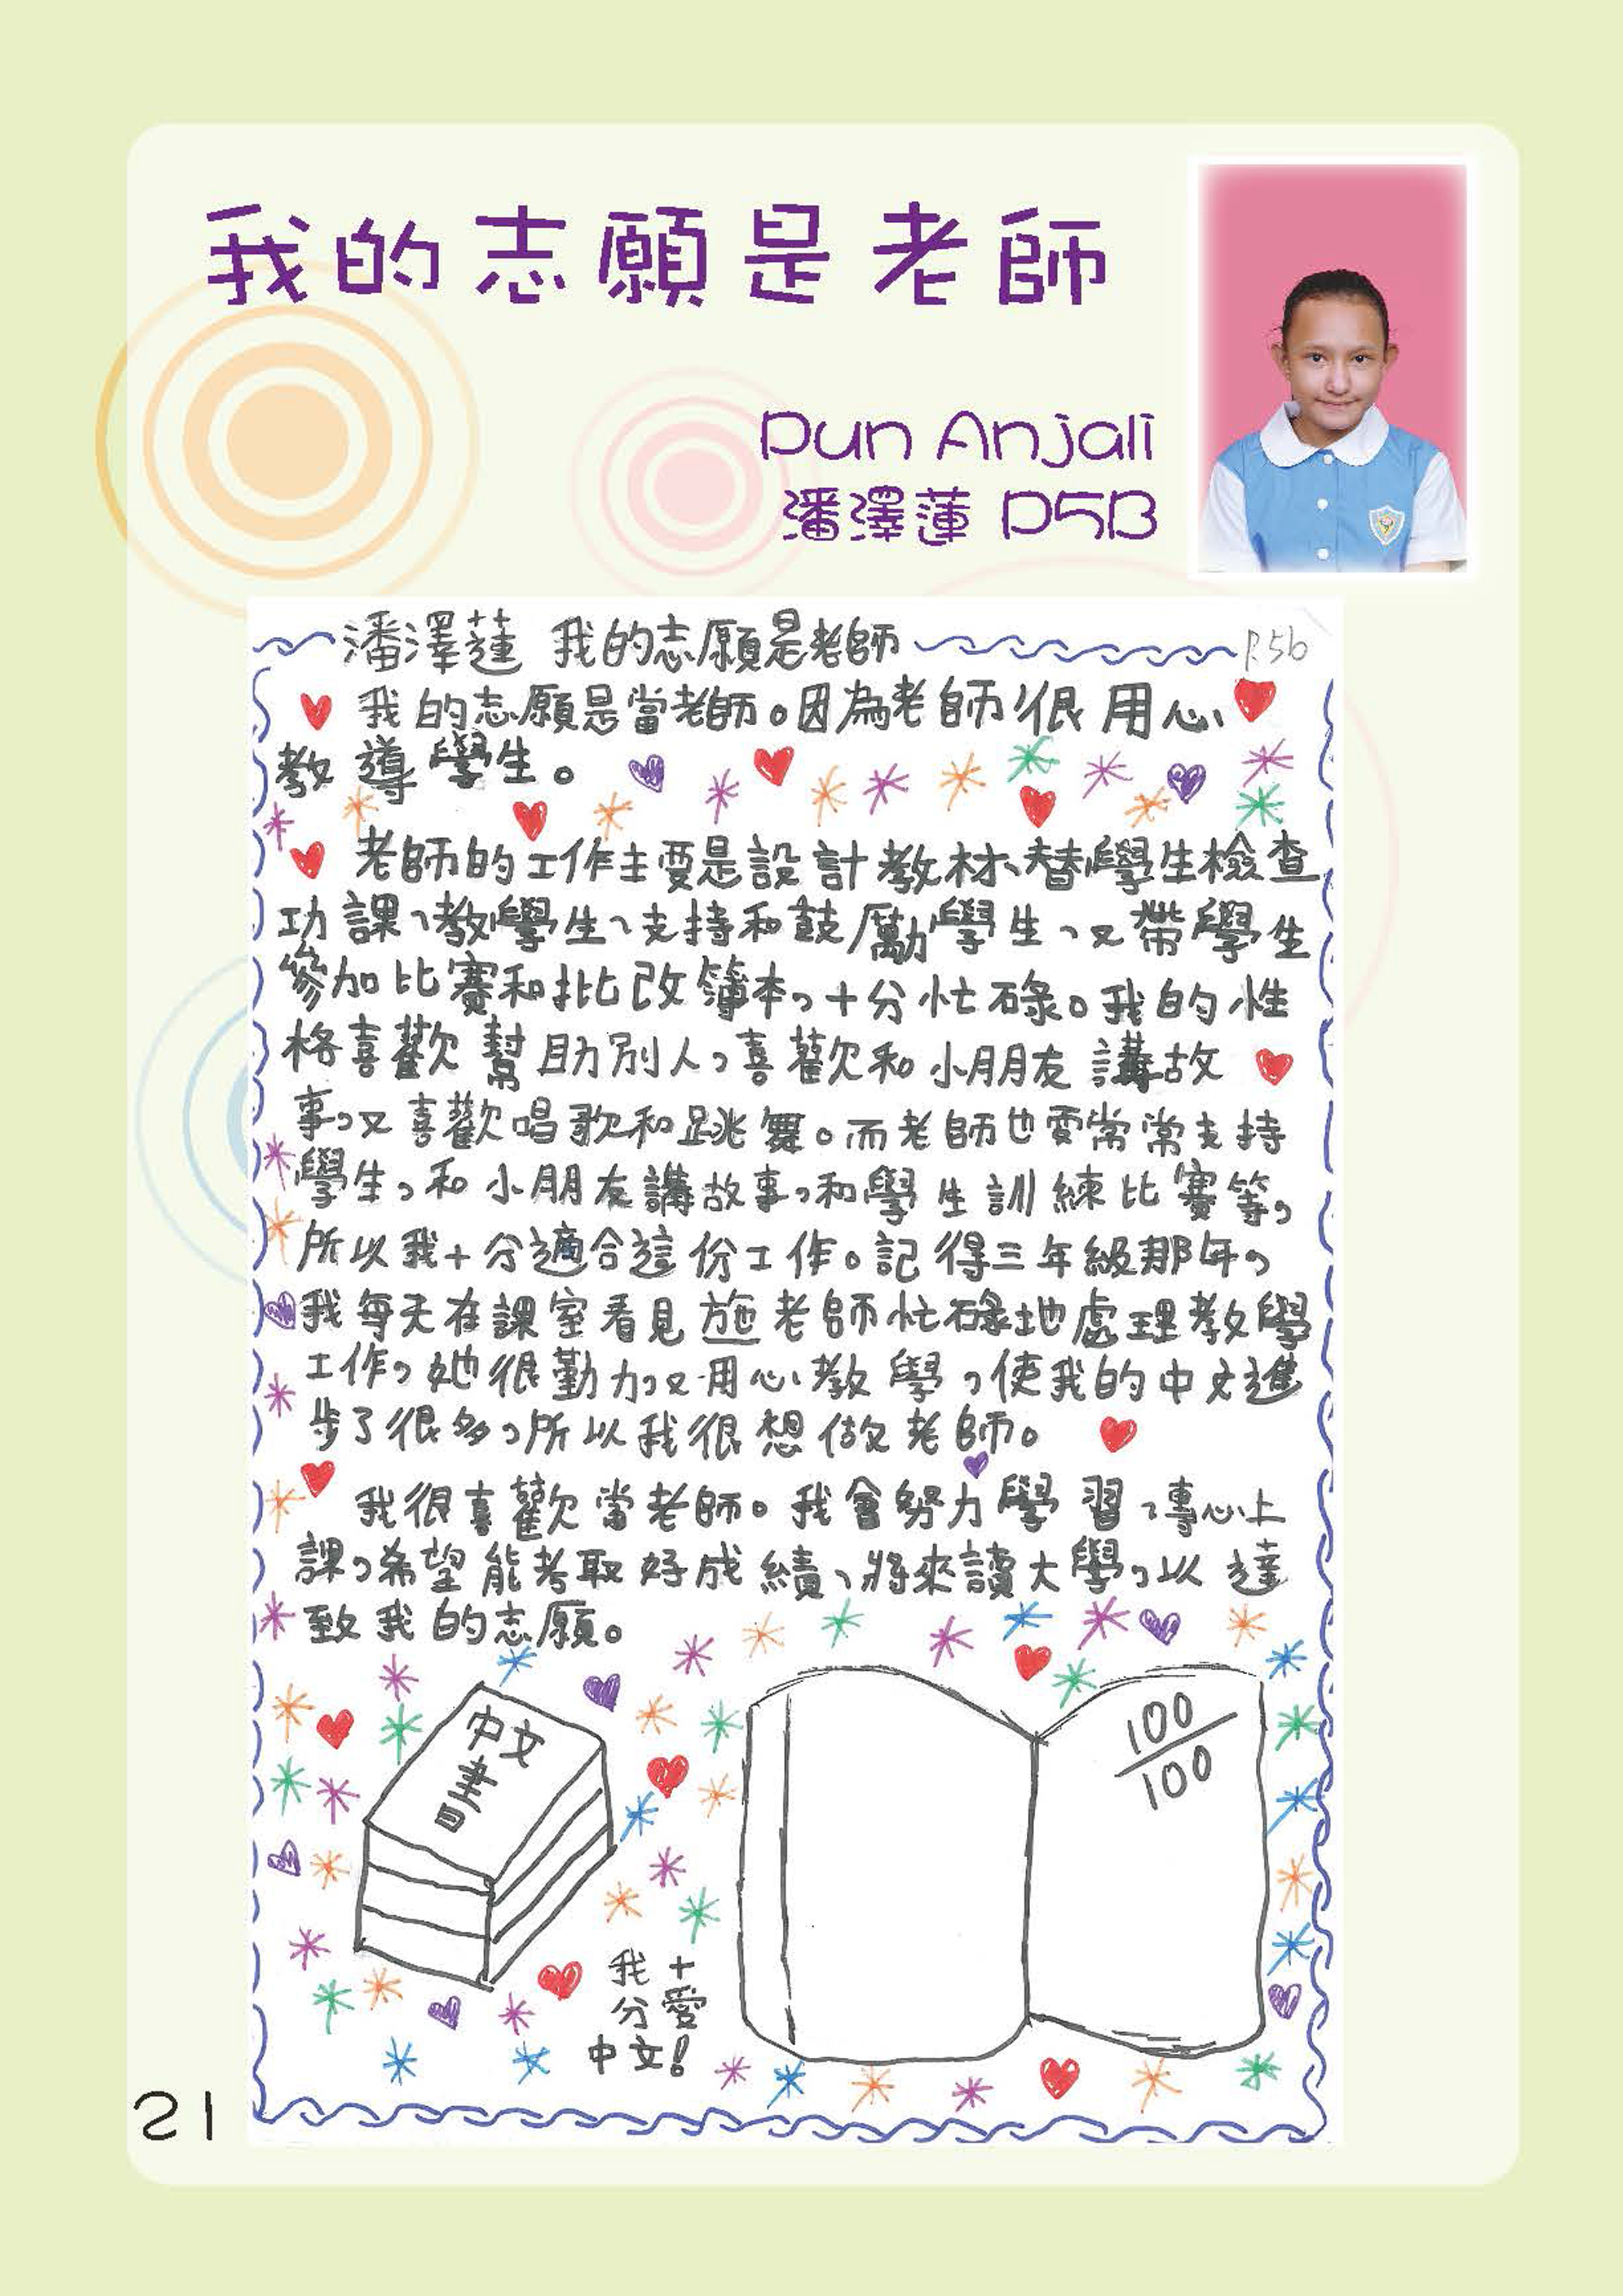 我的志願是老師
Pun Anjali
潘澤蓮 P5B
潘澤蓮 我的志願是老師 P.5b
我的志願是當老師。因為老師很用心
教導學生。
老師的工作主要是設計教材、替學生檢查
功課、教學生、支持和鼓勵學生、又帶學生
參加比賽和批改簿本，十分忙碌。我的性
格喜歡幫助別人，喜歡和小朋友講故
事，又喜歡唱歌和跳舞。而老師也要常常支持
學生，和小朋友講故事，和學生訓練比賽等，
所以我十分適合這份工作。記得三年級那年，
我每天在課室看見施老師忙碌地處理教學
工作，她很勤力，又用心教學，使我的中文進
步了很多，所以我很想做老師。
我很喜歡當老師。我會努力學習、專心上
課，希望能考取好成績、將來讀大學，以達
致我的志願。
中文
書
100
100
我十
分愛
中文!
21